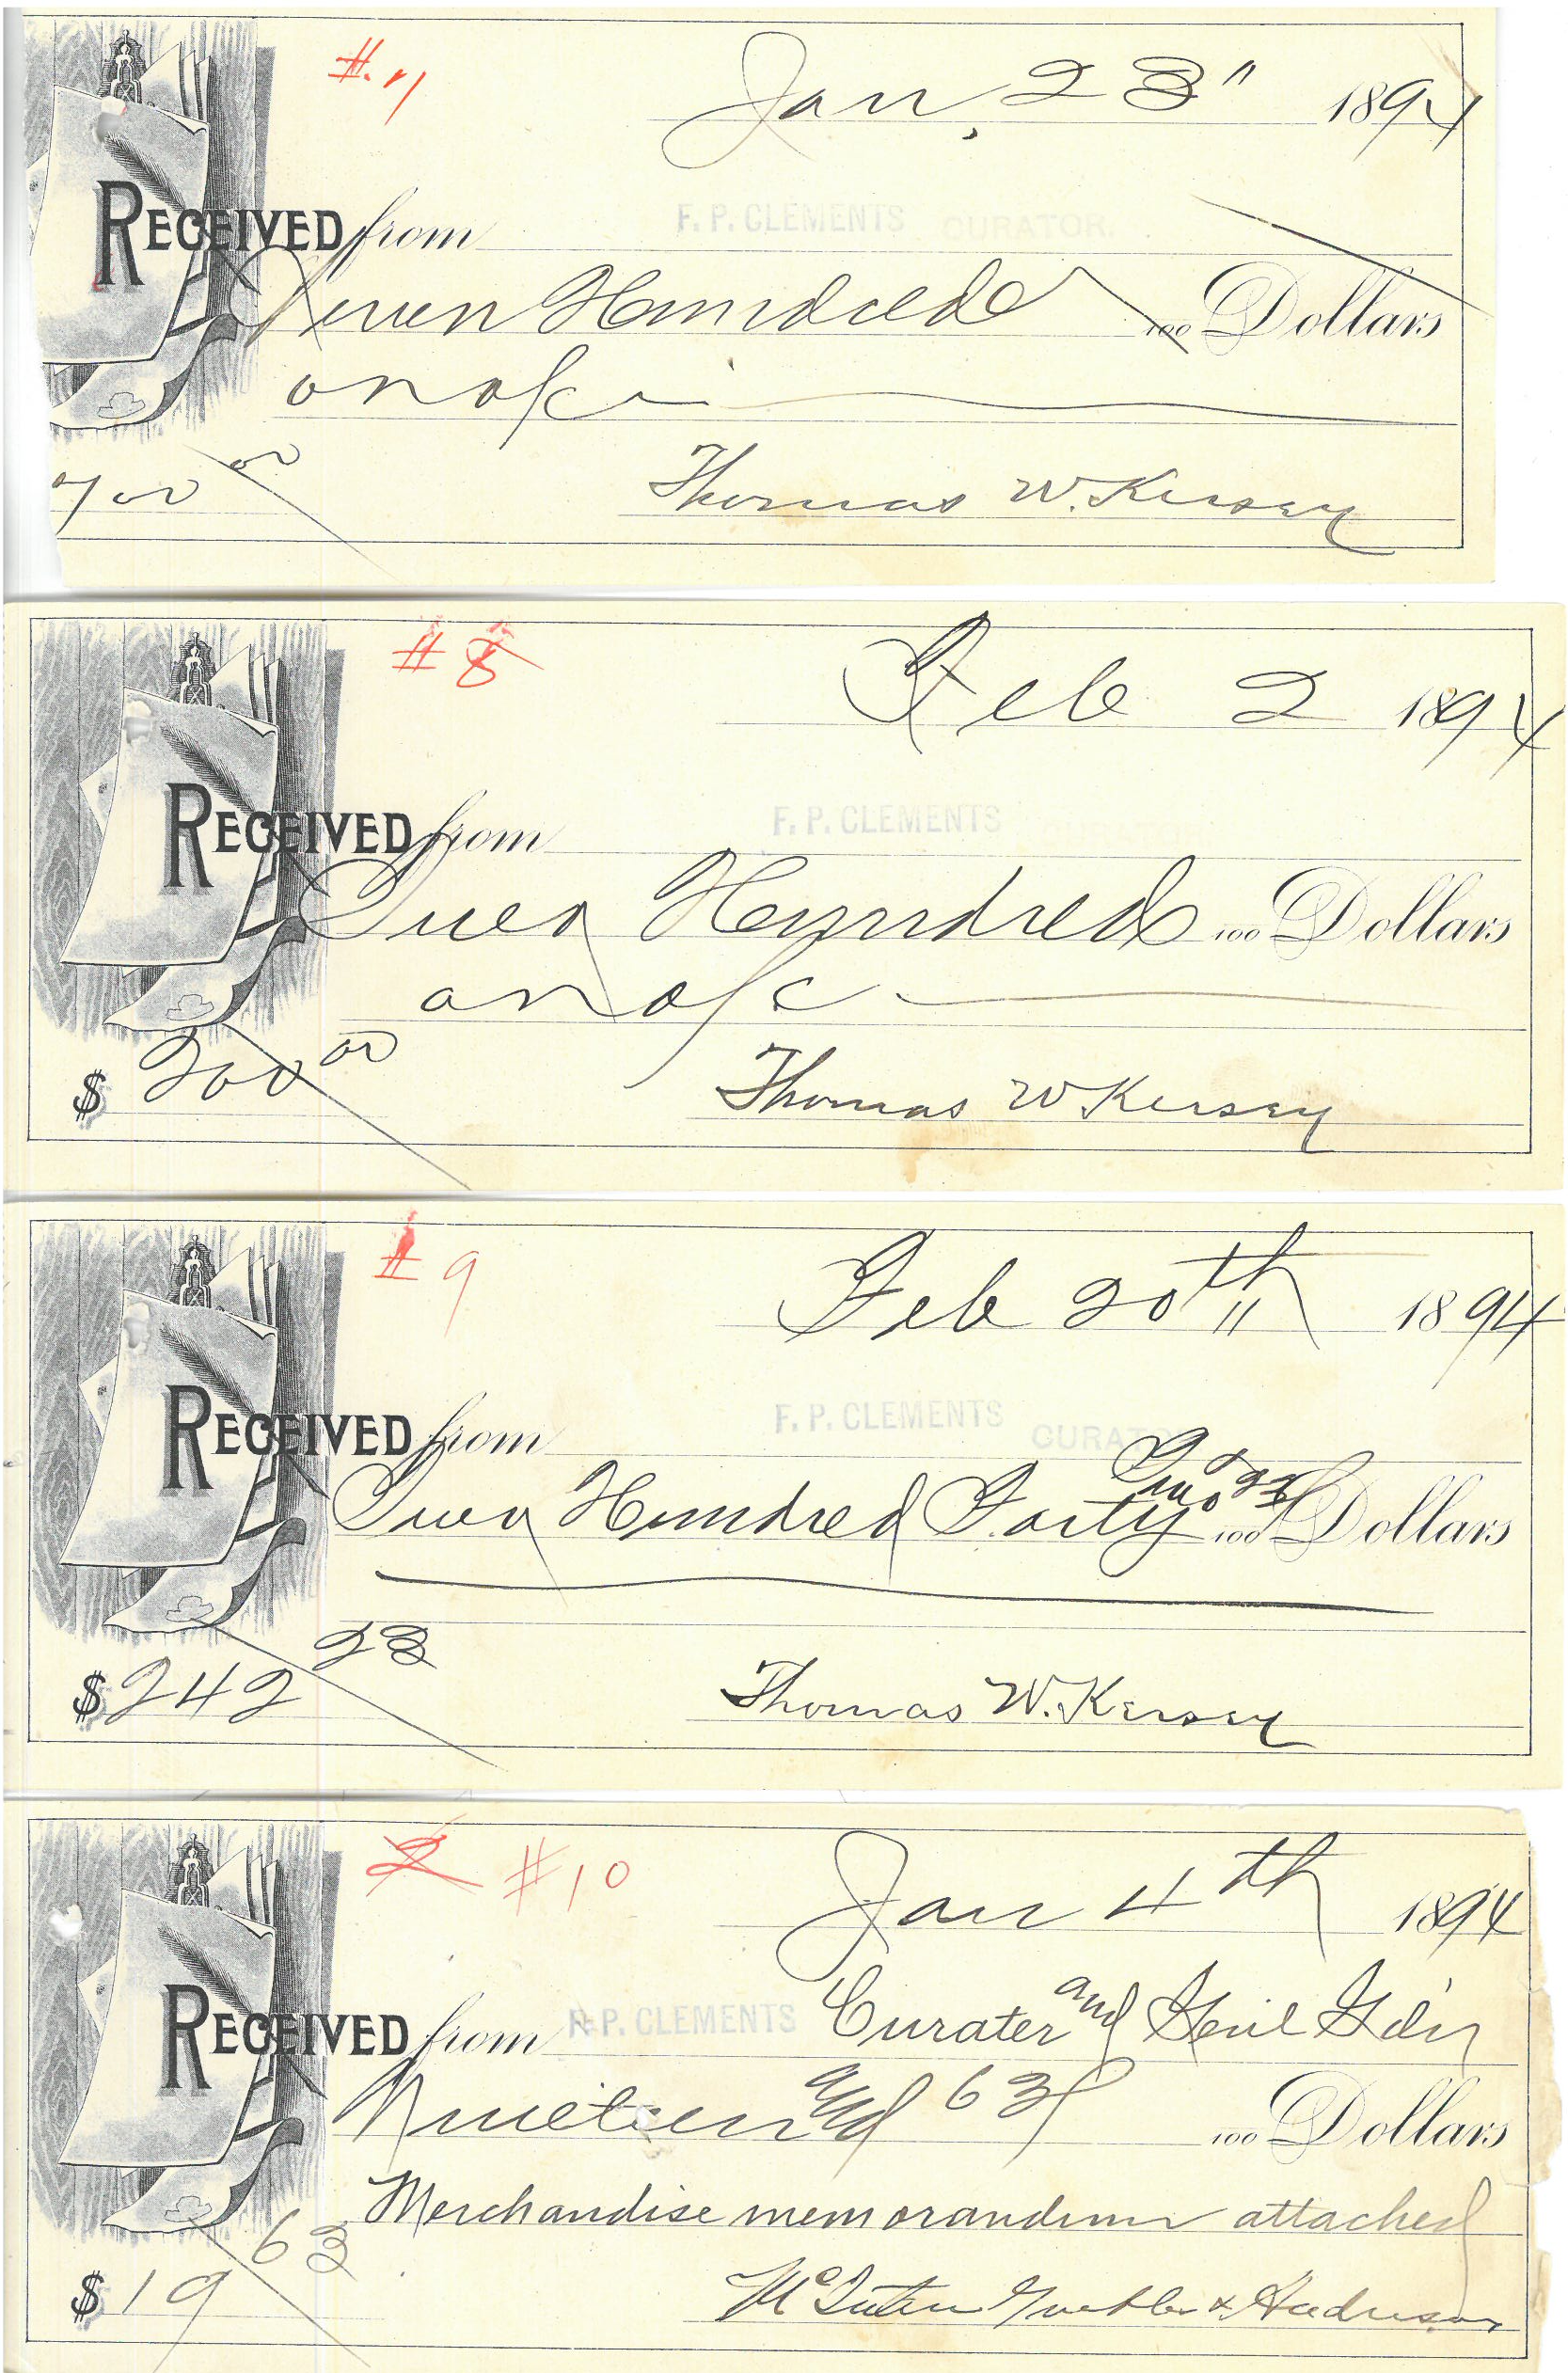 #. 7
Jan, 23" 1894
RECEIVED from F. P. CLEMENTS CURATOR.
Seven Hundred 100 Dollars
on a/c
700 00
Thomas W. Kersey
# 8
Feb 2 1894
RECEIVED from F. P. CLEMENTS
Two Hundred 100 Dollars
on a/c
$ 200 00
Thomas W Kersey
# 9
Feb 20th 1894
RECEIVED from F. P. CLEMENTS CURAT
Two Hundred Forty Two & 23/100 Dollars
$ 242 23
Thomas W. Kersey
# 10
Jan 4th 1894
RECEIVED from F. P. CLEMENTS Curater and Genl Gdn
Nineteen and 63/100 Dollars
Merchandise memorandum attached
$ 19 63
&